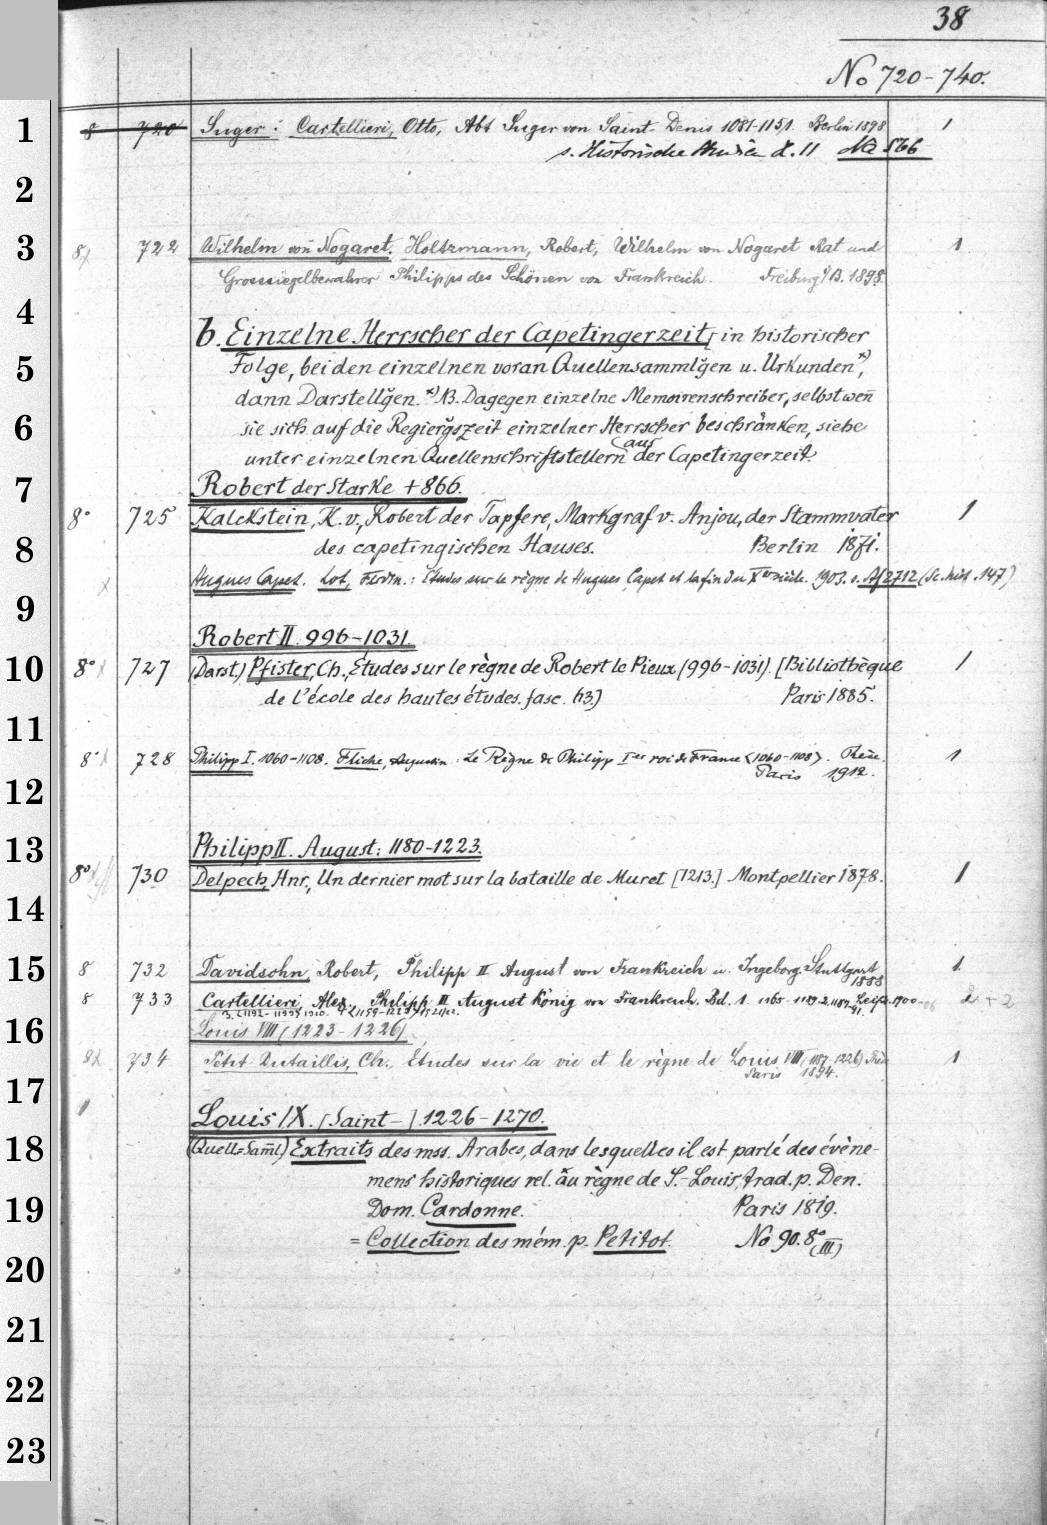 38
No 720-740.
1 8 720 Suger: Cartellieri, Otto, Abt Suger von Saint-Denis 1081-1151. Berlin 1898 1
s. Historische Studien H. 11 No 566
2
3 8 722 Wilhelm von Nogaret. Holtzmann, Robert, Wilhelm von Nogaret Rat und 1
Grosssiegelbewahrer Philipps des Schönen von Frankreich. Freiburg i/B. 1898.
4
b. Einzelne Herrscher der Capetingerzeit, in historischer
5 Folge, bei den einzelnen voran Quellensammlg̃en u. Urkunden*),
dann Darstellg̃en. *) NB. Dagegen einzelne Memoirenschreiber, selbst weñ
6 sie sich auf die Regierg̃szeit einzelner Herrscher beschränken, siehe
unter einzelnen Quellenschriftstellern aus der Capetingerzeit.
7 Robert der Starke +866.
8° 725 Kalckstein, K. v., Robert der Tapfere, Markgraf v. Anjou, der Stammvater 1
8 des capetingischen Hauses. Berlin 1871.
x Hugues Capet. Lot, Ferdin.: Études sur le règne de Hugues Capet et la fin du Xe siècle. 1903. s. Af 2712 (Sc. hist. 147)
9
Robert II. 996-1031.
10 8° x 727 (Darst.) Pfister, Ch., Études sur le règne de Robert le Pieux (996-1031). [Bibliothèque 1
de l'école des hautes études. fasc. 63.] Paris 1885.
11
8° x 728 Philipp I. 1060-1108. Fliche, Augustin: Le Règne de Philipp Ier roi de France (1060-1108). Thèse. 1
12 Paris 1912.
13 Philipp II. August: 1180-1223.
8° 730 Delpech, Hnr., Un dernier mot sur la bataille de Muret [1213.] Montpellier 1878. 1
14
15 8 732 Davidsohn, Robert, Philipp II August von Frankreich u. Ingeborg. Stuttgart 1
1888
8 733 Cartellieri, Alex., Philipp II August König von Frankreich. Bd. 1. 1165-1189. 2. 1187-91. Leipz. 1900-06 2 + 2
16 Louis VIII (1223-1226)
8 x 734 Petit-Dutaillis, Ch., Études sur la vie et le règne de Louis VIII (1187-1226) 1
Paris 1894.
17
Louis IX. [Saint-] 1226-1270.
18 (Quell=Sam̃l) Extraits des mss. Arabes, dans lesquelles il est parlé des évène-
mens historiques rel. au règne de S.-Louis, trad. p. Den.
19 Dom. Cardonne. Paris 1819.
= Collection des mém. p. Petitot. No 90. 8°
(III)
20
21
22
23